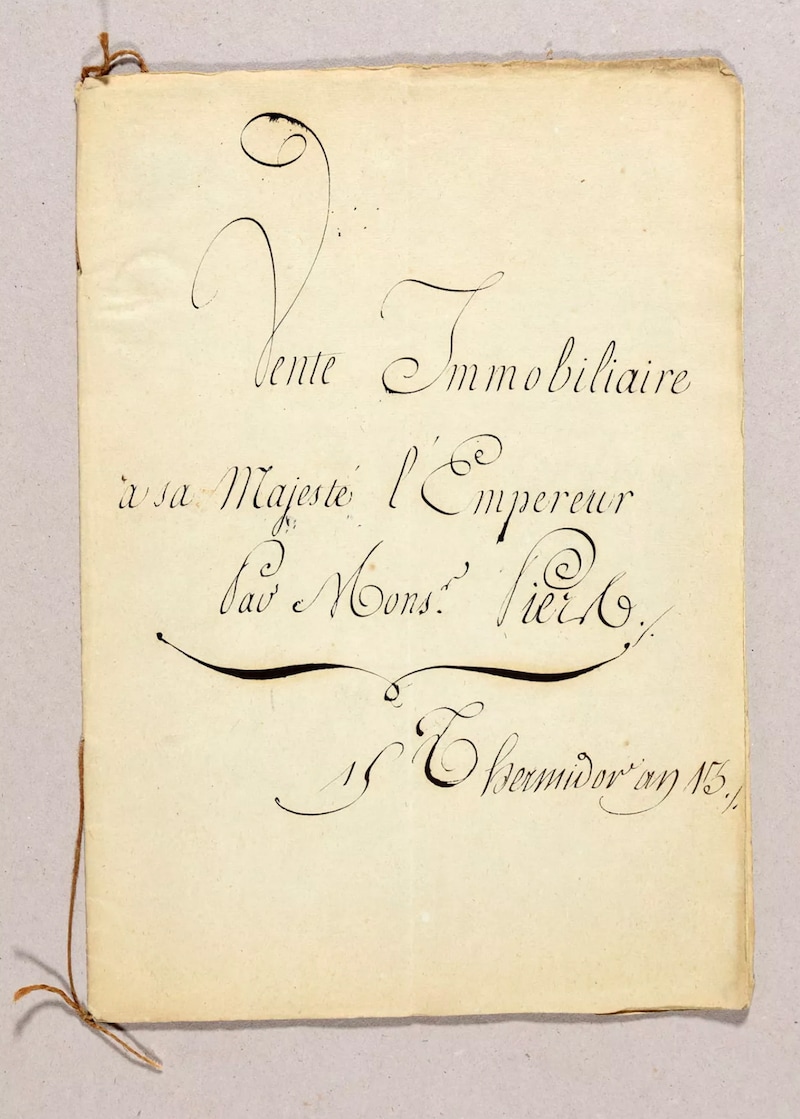 Vente Immobiliaire
a sa Majesté l'Empereur
Par Mons.r
15 Thermidor an 13./.